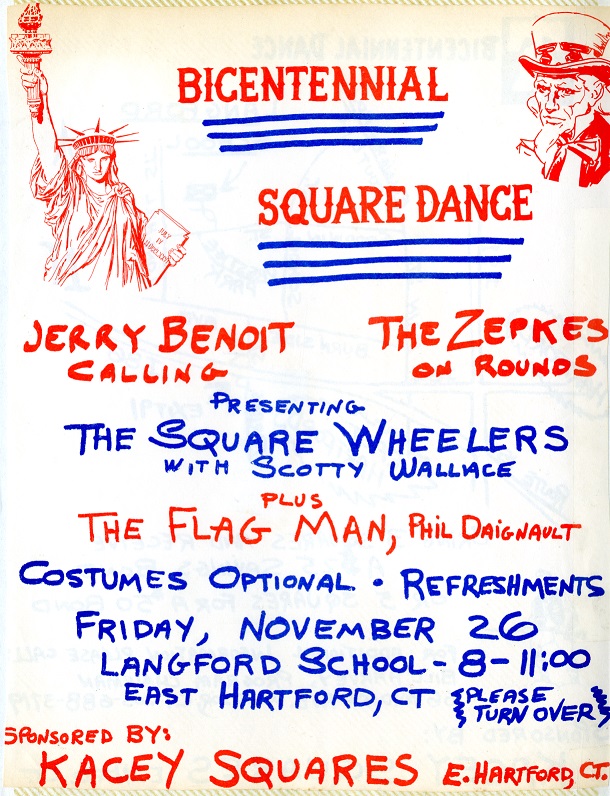 BICENTENNIAL
SQUARE DANCE
JULY
IV
JERRY BENOIT
CALLING
THE ZEPKES
ON ROUNDS
PRESENTING
THE SQUARE WHEELERS
WITH SCOTTY WALLACE
PLUS
THE FLAG MAN, PHIL DAIGNAULT
COSTUMES OPTIONAL • REFRESHMENTS
FRIDAY, NOVEMBER 26
LANGFORD SCHOOL - 8-11:00
EAST HARTFORD, CT {PLEASE
TURN OVER}
SPONSORED BY:
KACEY SQUARES E. HARTFORD, CT.